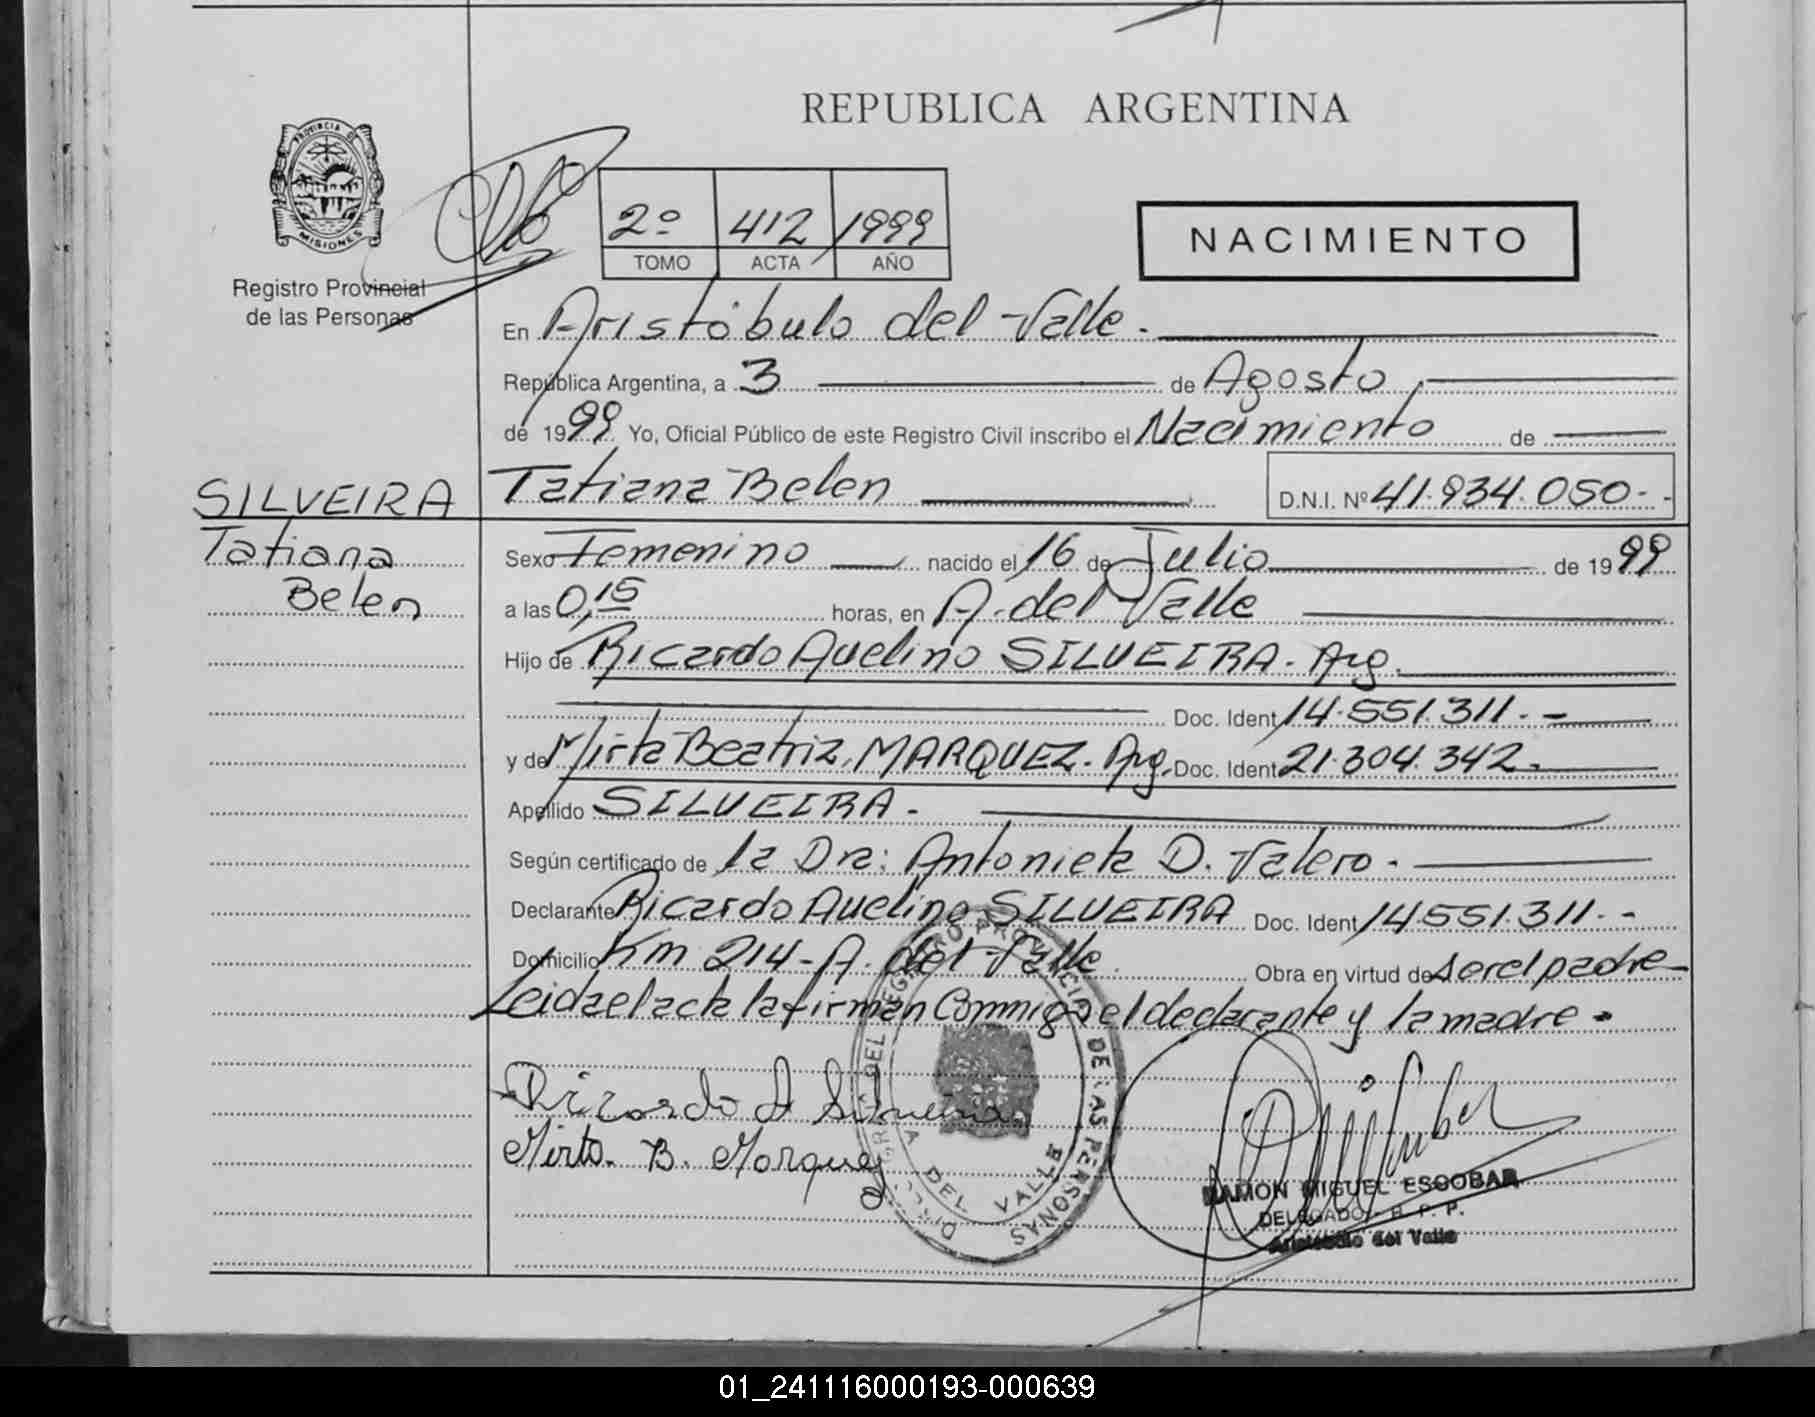 REPUBLICA ARGENTINA
PROVINCIA DE
MISIONES
Registro Provincial
de las Personas
2º 412 1999
TOMO ACTA AÑO
NACIMIENTO
En Aristóbulo del Valle.
República Argentina, a 3 de Agosto
de 1999 Yo, Oficial Público de este Registro Civil inscribo el Nacimiento de
SILVEIRA Tatiana Belen D.N.I. Nº 41.934.050.-
Tatiana
Belen
Sexo Femenino nacido el 16 de Julio de 1999
a las 0,15 horas, en A. del Valle
Hijo de Ricardo Avelino SILVEIRA. Arg.
Doc. Ident 14.551.311.-
y de Mirta Beatriz MARQUEZ. Arg. Doc. Ident 21.304.342.
Apellido SILVEIRA.
Según certificado de la Dra: Antonieta D. Valero.
Declarante Ricardo Avelino SILVEIRA Doc. Ident 14.551.311.-
Domicilio Km 214-A. del Valle Obra en virtud de ser el padre
Leida el acta la firman Conmigo el declarante y la madre.
Ricardo A Silveira
Mirta B. Marquez
DEL REGISTRO PROVINCIAL DE LAS PERSONAS
A DEL VALLE
RAMON MIGUEL ESCOBAR
DELEGADO R. P. P.
Aristobulo del Valle
01_241116000193-000639